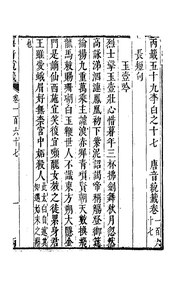 丙籤五十九李白之十七 唐音統籤卷一百六十七
長短句
玉壺吟
烈士擊玉壺壯心惜暮年三杯拂劍舞秋月忽然
高詠涕泗漣鳳凰初下紫泥詔謁帝稱觴登御筵
揄揚九重萬乘主謔浪赤墀青瑣賢朝天數換飛
龍馬敕賜珊瑚白玉鞭世人不識東方朔大隱金
門是謫仙西施宜笑復宜嚬醜女效之徒累身君
王雖愛蛾眉好無奈宮中妒殺人
卷一百六十七